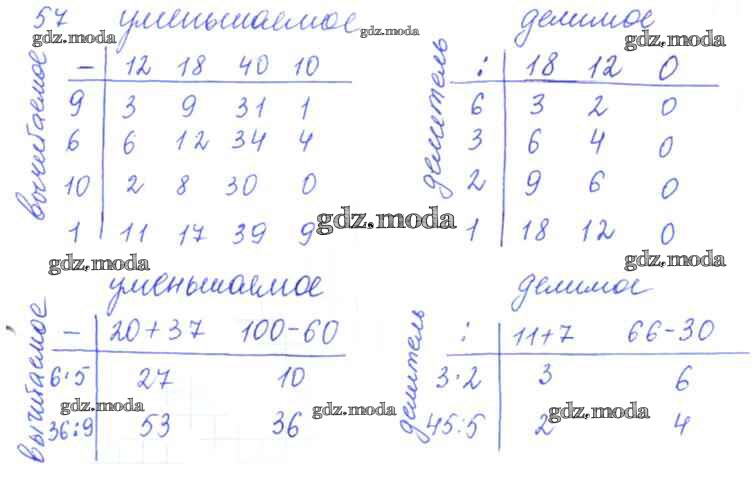 57 уменьшаемое
gdz.moda gdz.moda
вычитаемое
- 12 18 40 10
9 3 9 31 1
6 6 12 34 4
10 2 8 30 0
1 11 17 39 9
gdz.moda
gdz.moda
делимое
gdz.moda
делитель
: 18 12 0
6 3 2 0
3 6 4 0
2 9 6 0
1 18 12 0
gdz.moda
уменьшаемое
вычитаемое
- 20+37 100-60
6·5 27 10
36:9 53 36
gdz.moda gdz.moda
делимое
делитель
: 11+7 66-30
3·2 3 6
45:5 2 4
gdz.moda